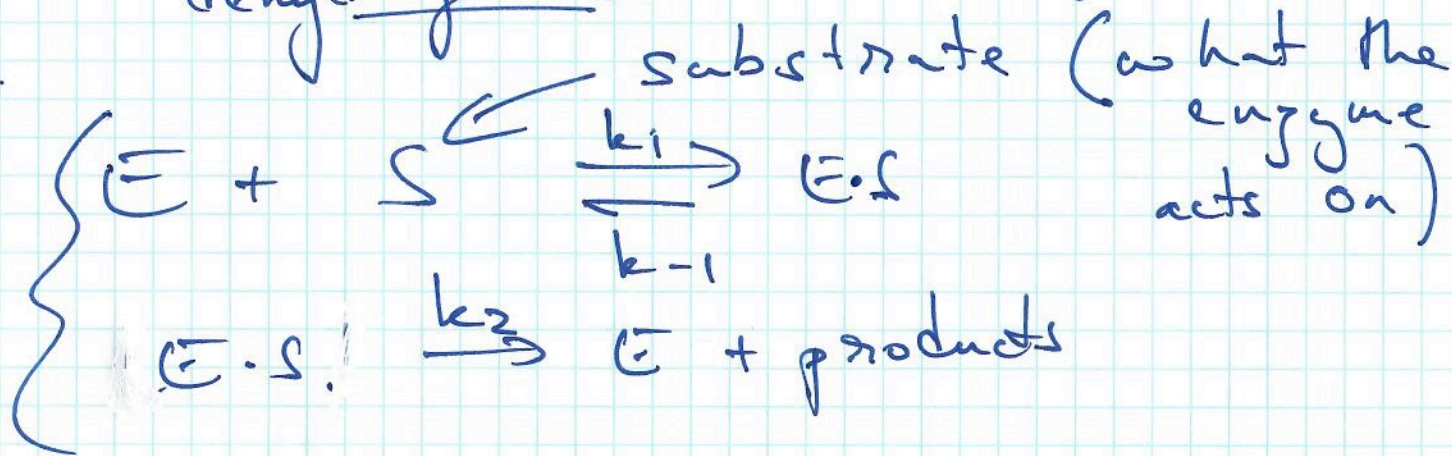 substrate (what the
enzyme
acts on)
E + S ⇌ E·S
k1
k-1
E·S. k2 → E + products